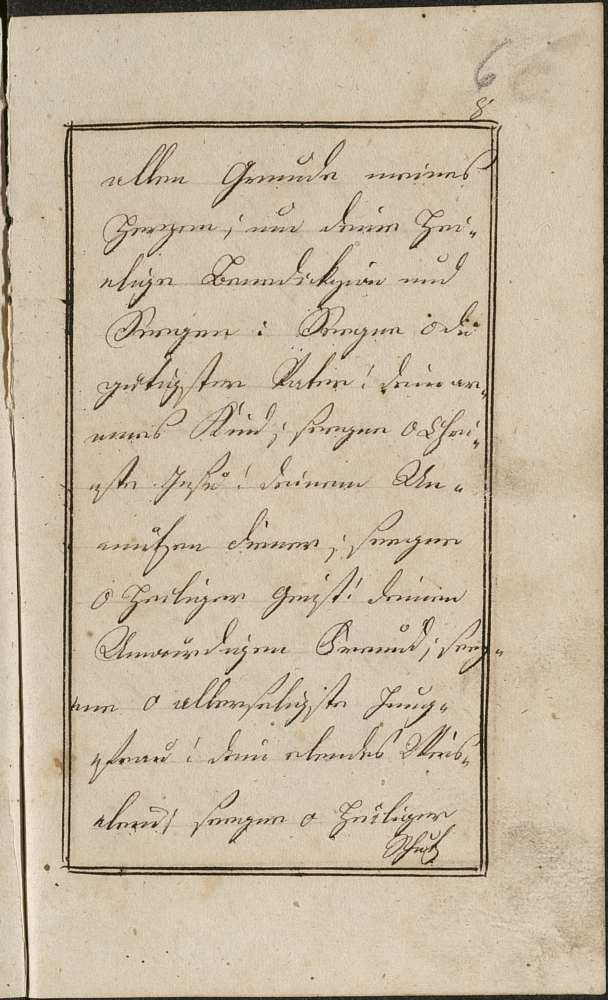 6
8
allen Grunde meines
Herzen; um deine Hei-
lige Benedikzion und
Seegen: Seegne o du
gütigster Vater! dein ar-
mes Kind; seegne o Chri-
ste Jesu! deinem Un-
nutzen diener; seegne
O Heiliger Geist! deinen
Unwürdigen Freund; seeg-
ne o allerseligste Jung-
frau! dein elendes
seegne o Heiliger
Schutz